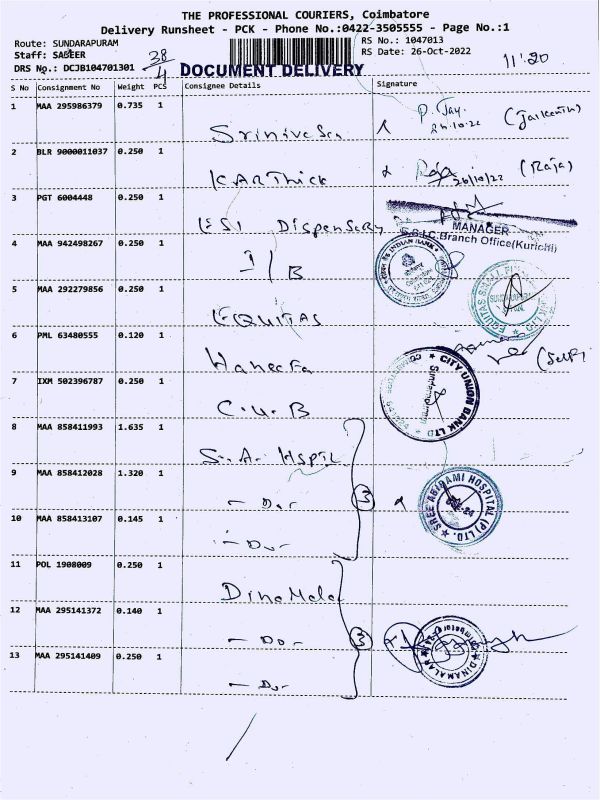 THE PROFESSIONAL COURIERS, Coimbatore
Delivery Runsheet - PCK - Phone No.:0422-3505555 - Page No.:1
Route: SUNDARAPURAM
RS No.: 1047013
Staff: SABEER
RS Date: 26-Oct-2022
DRS No.: DCJB104701301
38/4
DOCUMENT DELIVERY
11:20
S No Consignment No Weight PCS Consignee Details Signature
1 MAA 295986379 0.735 1 P. Jay.
2 BLR 9000011037 0.250 1 KARThick Raja 26/10/22 (Raja)
3 PGT 6004448 0.250 1 ESI Dispensary
MANAGER
E.S.I.C.Branch Office(Kurichi)
4 MAA 942498267 0.250 1 I/B
INDIAN BANK
5 MAA 292279856 0.250 1 EQUITAS
6 PML 63480555 0.120 1 Haneefa
7 IXM 502396787 0.250 1 C.U.B
CITY UNION BANK LTD
Sundarapuram
8 MAA 858411993 1.635 1 S.A. Hspitl
9 MAA 858412028 1.320 1 - Do - 3
SREE ABIRAMI HOSPITAL (P) LTD.
10 MAA 858413107 0.145 1 - Do -
11 POL 1908009 0.250 1 DinaMalar
12 MAA 295141372 0.140 1 - Do - 3
DINAMALAR
13 MAA 295141409 0.250 1 - Do -